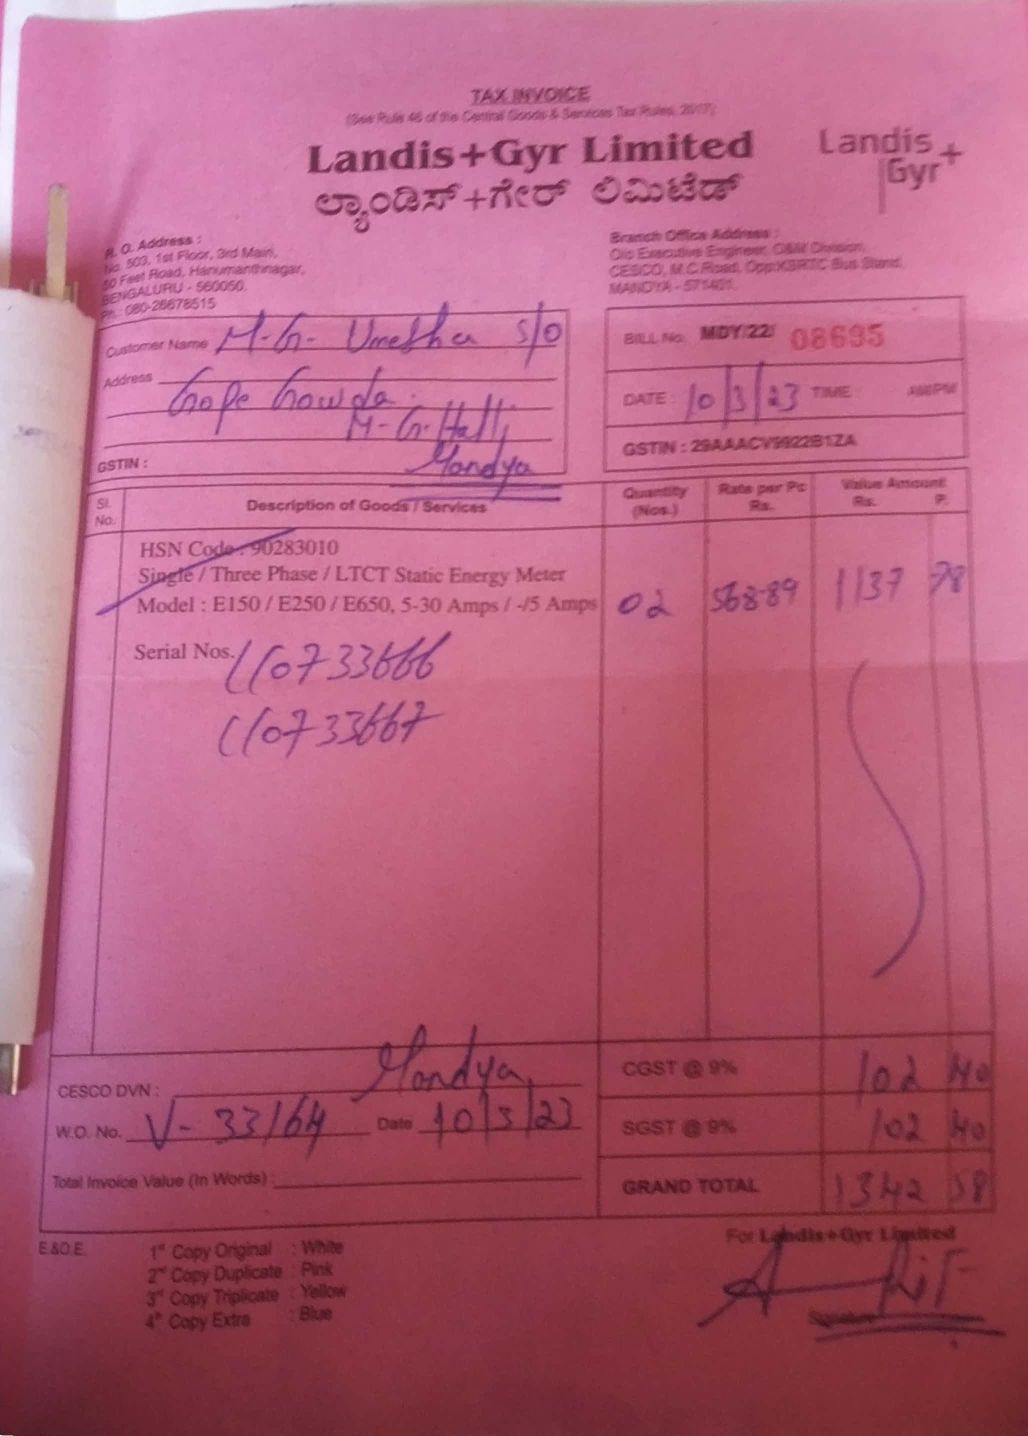 TAX INVOICE
(See Rule 46 of the Central Goods & Services Tax Rules, 2017)
Landis+Gyr Limited
ಲ್ಯಾಂಡಿಸ್+ಗೇರ್ ಲಿಮಿಟೆಡ್
Landis
Gyr+
R. O. Address :
No. 503, 1st Floor, 3rd Main,
Feet Road, Hanumanthnagar,
BENGALURU - 560050.
Ph.: 080-26678515
Branch Office Address :
O/o Executive Engineer, O&M Division,
CESCO, M.C.Road, Opp:KSRTC Bus Stand,
MANDYA - 571401.
Customer Name M-G- Umesha S/O
Address Gope Gowda.
M-G-Halli
Mandya
GSTIN :
BILL No. MDY/22/ 08695
DATE : 10/3/23 TIME : AM/PM
GSTIN : 29AAACV9922B1ZA
Sl. No. Description of Goods / Services Quantity (Nos.) Rate per Pc Rs. Value Amount Rs. P.
HSN Code : 90283010
Single / Three Phase / LTCT Static Energy Meter
Model : E150 / E250 / E650, 5-30 Amps / -/5 Amps 02 568-89 1137 78
Serial Nos. 110733666
110733667
CESCO DVN : Mandya
W.O. No. V- 33164 Date 10/3/23
Total Invoice Value (In Words) :
CGST @ 9% 102 40
SGST @ 9% 102 40
GRAND TOTAL 1342 58
E.&O.E.
1st Copy Original : White
2nd Copy Duplicate : Pink
3rd Copy Triplicate : Yellow
4th Copy Extra : Blue
For Landis+Gyr Limited
Signature